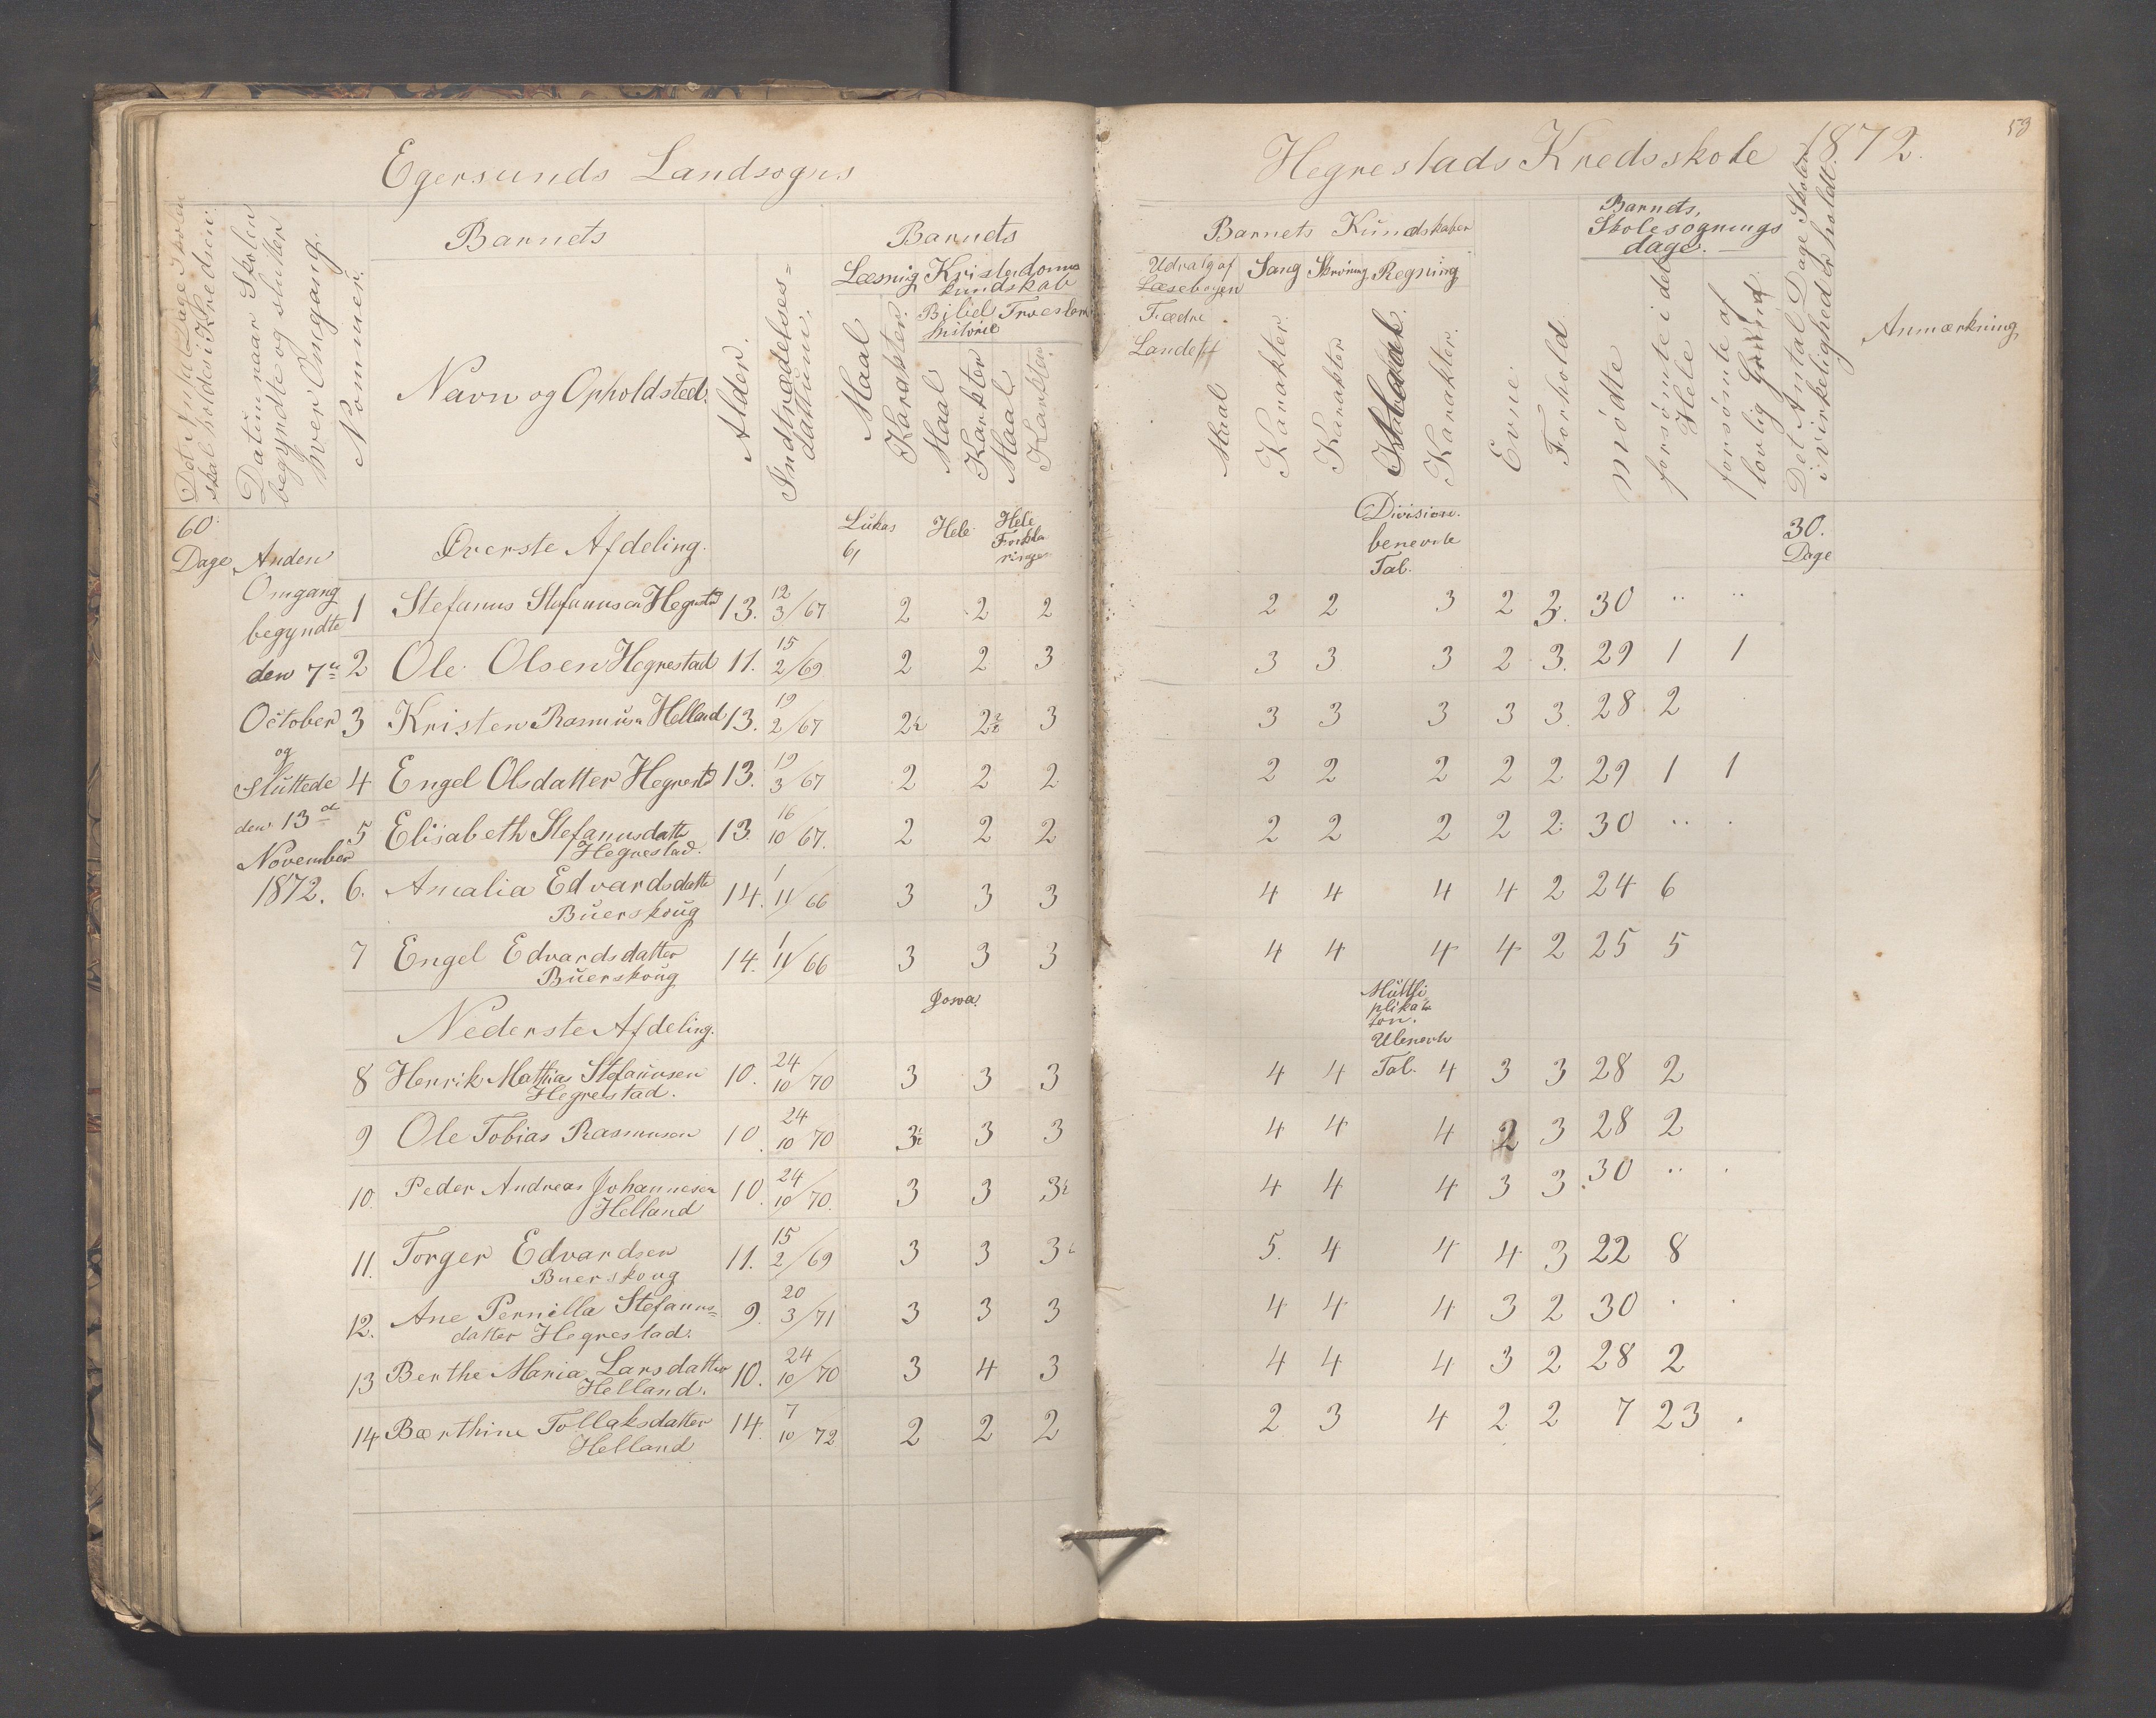 Egersunds Landsogns
Hegrestads Kredsskole 1872.
53
Det Antal Dage Skolen
skal holdes i Kredsen.
Datum naar Skolen
begyndte og slutter
hver Omgang.
Nommer.
Barnets
Navn og Opholdsted.
Alder.
Indtrædelses=
dattum.
Barnets
Læsnig Kristendoms
kundskab
Bibel Troeslere
historie
Maal
Karakter.
Maal
Karakter
Maal
Karakter.
Barnets Kundskaber
Udvalg af Læsebogen
Fædre
Landet
Sang Skrivning Regning
Maal
Karakter
Karakter
Karakter.
Evne.
Forhold
Barnets,
Skolesøgnings
dage.
mødte
forsømte i det
Hele
forsømte af
lovlig Grund.
Det Antal Dage Skolen
i virkelighed er holdt.
Anmærkning
60
Dage
Anden
Omgang
begyndte
den 7de
October
og
sluttede
den 13de
November
1872.
Øverste Afdeling. Lukas 6, Hele Hele Forkla ringe Division. benevnte Tal. 30. Dage
1 Stefanus Stefanusen Hegrestad 13. 12 3/67 2 2 2 2 2 3 2 3. 30 .. ..
2 Ole Olsen Hegrestad 11. 15 2/69 2 2 3 3 3 3 2 3. 29 1 1
3 Kristen Rasmusn Helland 13. 19 2/67 2½ 2½ 3 3 3 3 3 3 28 2
4 Engel Olsdatter Hegrestd 13. 19 3/67 2 2 2 2 2 2 2 2 29 1 1
5 Elisabeth Stefanusdattr Hegrestad. 13. 16 10/67. 2 2 2 2 2 2 2 2 30 .. .
6. Amalia Edvardsdatte Buerskoug 14. 1 11/66 3 3 3 4 4 4 4 2 24 6
7 Engel Edvardsdatter Buerskoug 14. 1 11/66 3 3 3 4 4 4 4 2 25 5
Nederste Afdeling. Josva. Multi plika sion. Ubenevnte Tal.
8 Henrik Mathias Stefanusen Hegrestad. 10. 24 10/70 3 3 3 4 4 4 3 3 28 2
9 Ole Tobias Rasmusen 10. 24 10/70 3½ 3 3 4 4 4 2 3 28 2
10. Peder Andreas Johannesen Helland 10. 24 10/70. 3 3 3½ 4 4 4 3 3 30 .. .
11. Torger Edvardsen Buerskoug 11. 15 2/69 3 3 3½ 5. 4 4 4 3 22 8
12. Ane Pernilla Stefanus= datter Hegrestad. 9. 20 3/71 3 3 3 4 4 4 3 2 30 . .
13 Berthe Maria Larsdatter Helland. 10. 24 10/70 3 4 3 4 4 4 3 2 28 2
14 Bærthine Tollaksdatter Helland 14. 7 10/72 2 2 2 2 3 4 2 2 7 23 .